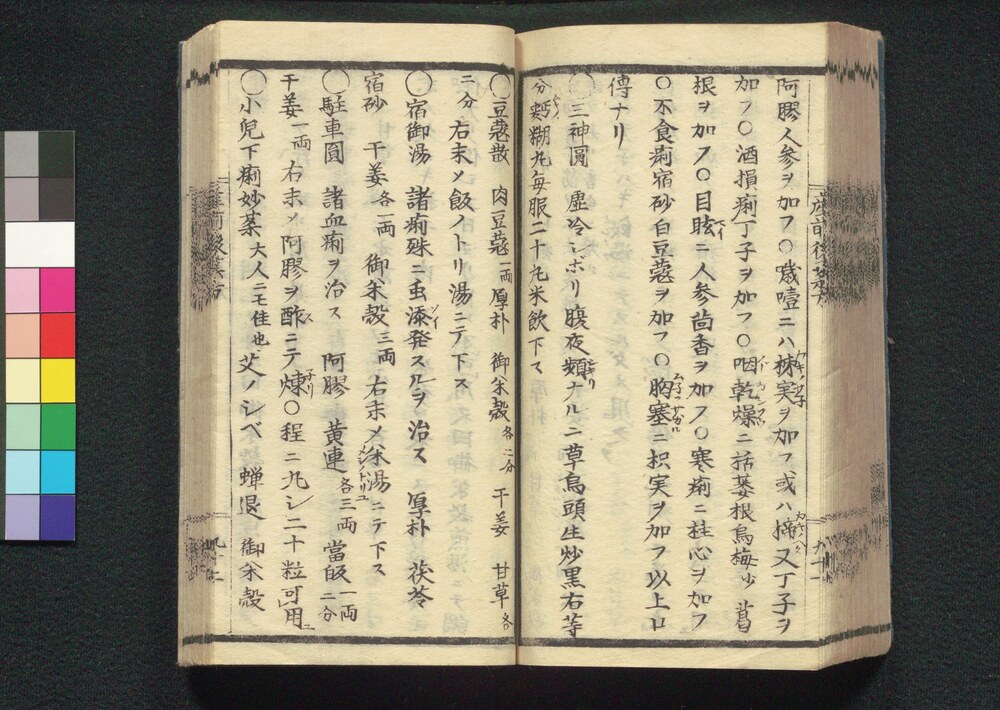 阿膠人参ヲ加フ〇噦噎ニハ棟実ヲ加フ或ハ擣又丁子ヲ
加フ〇酒損痢丁子ヲ加フ〇咽乾燥ニ括蔞根烏梅少 葛
根ヲ加フ〇目眩ニ人参茴香ヲ加フ〇寒痢ニ桂心ヲ加フ
〇不食痢宿砂白豆蔲ヲ加フ〇胸塞ニ枳実ヲ加フ以上口
傳ナリ
〇三神圓 虚冷シボリ腹夜頻ナルニ草烏頭生炒黒右等
分麪糊丸毎服二十丸米飲下ス
〇豆蔲散 肉豆蔲一両厚朴 御米殻各二分 干姜 甘草各
二分 右末メ飯ノトリ湯ニテ下ス
〇宿御湯 諸痢殊ニ虫添発スルヲ治ス 厚朴 茯苓
宿砂 干姜各一両御米殻三両 右末メ米湯ニテ下ス
〇駐車圓 諸血痢ヲ治ス 阿膠 黄連各三両 當皈一両二分
干姜一両 右末メ阿膠ヲ酢ニテ煉〇程ニ丸シ二十粒可用
〇小兒下痢妙薬大人ニモ佳也 艾ノシベ 蝉退 御米殻